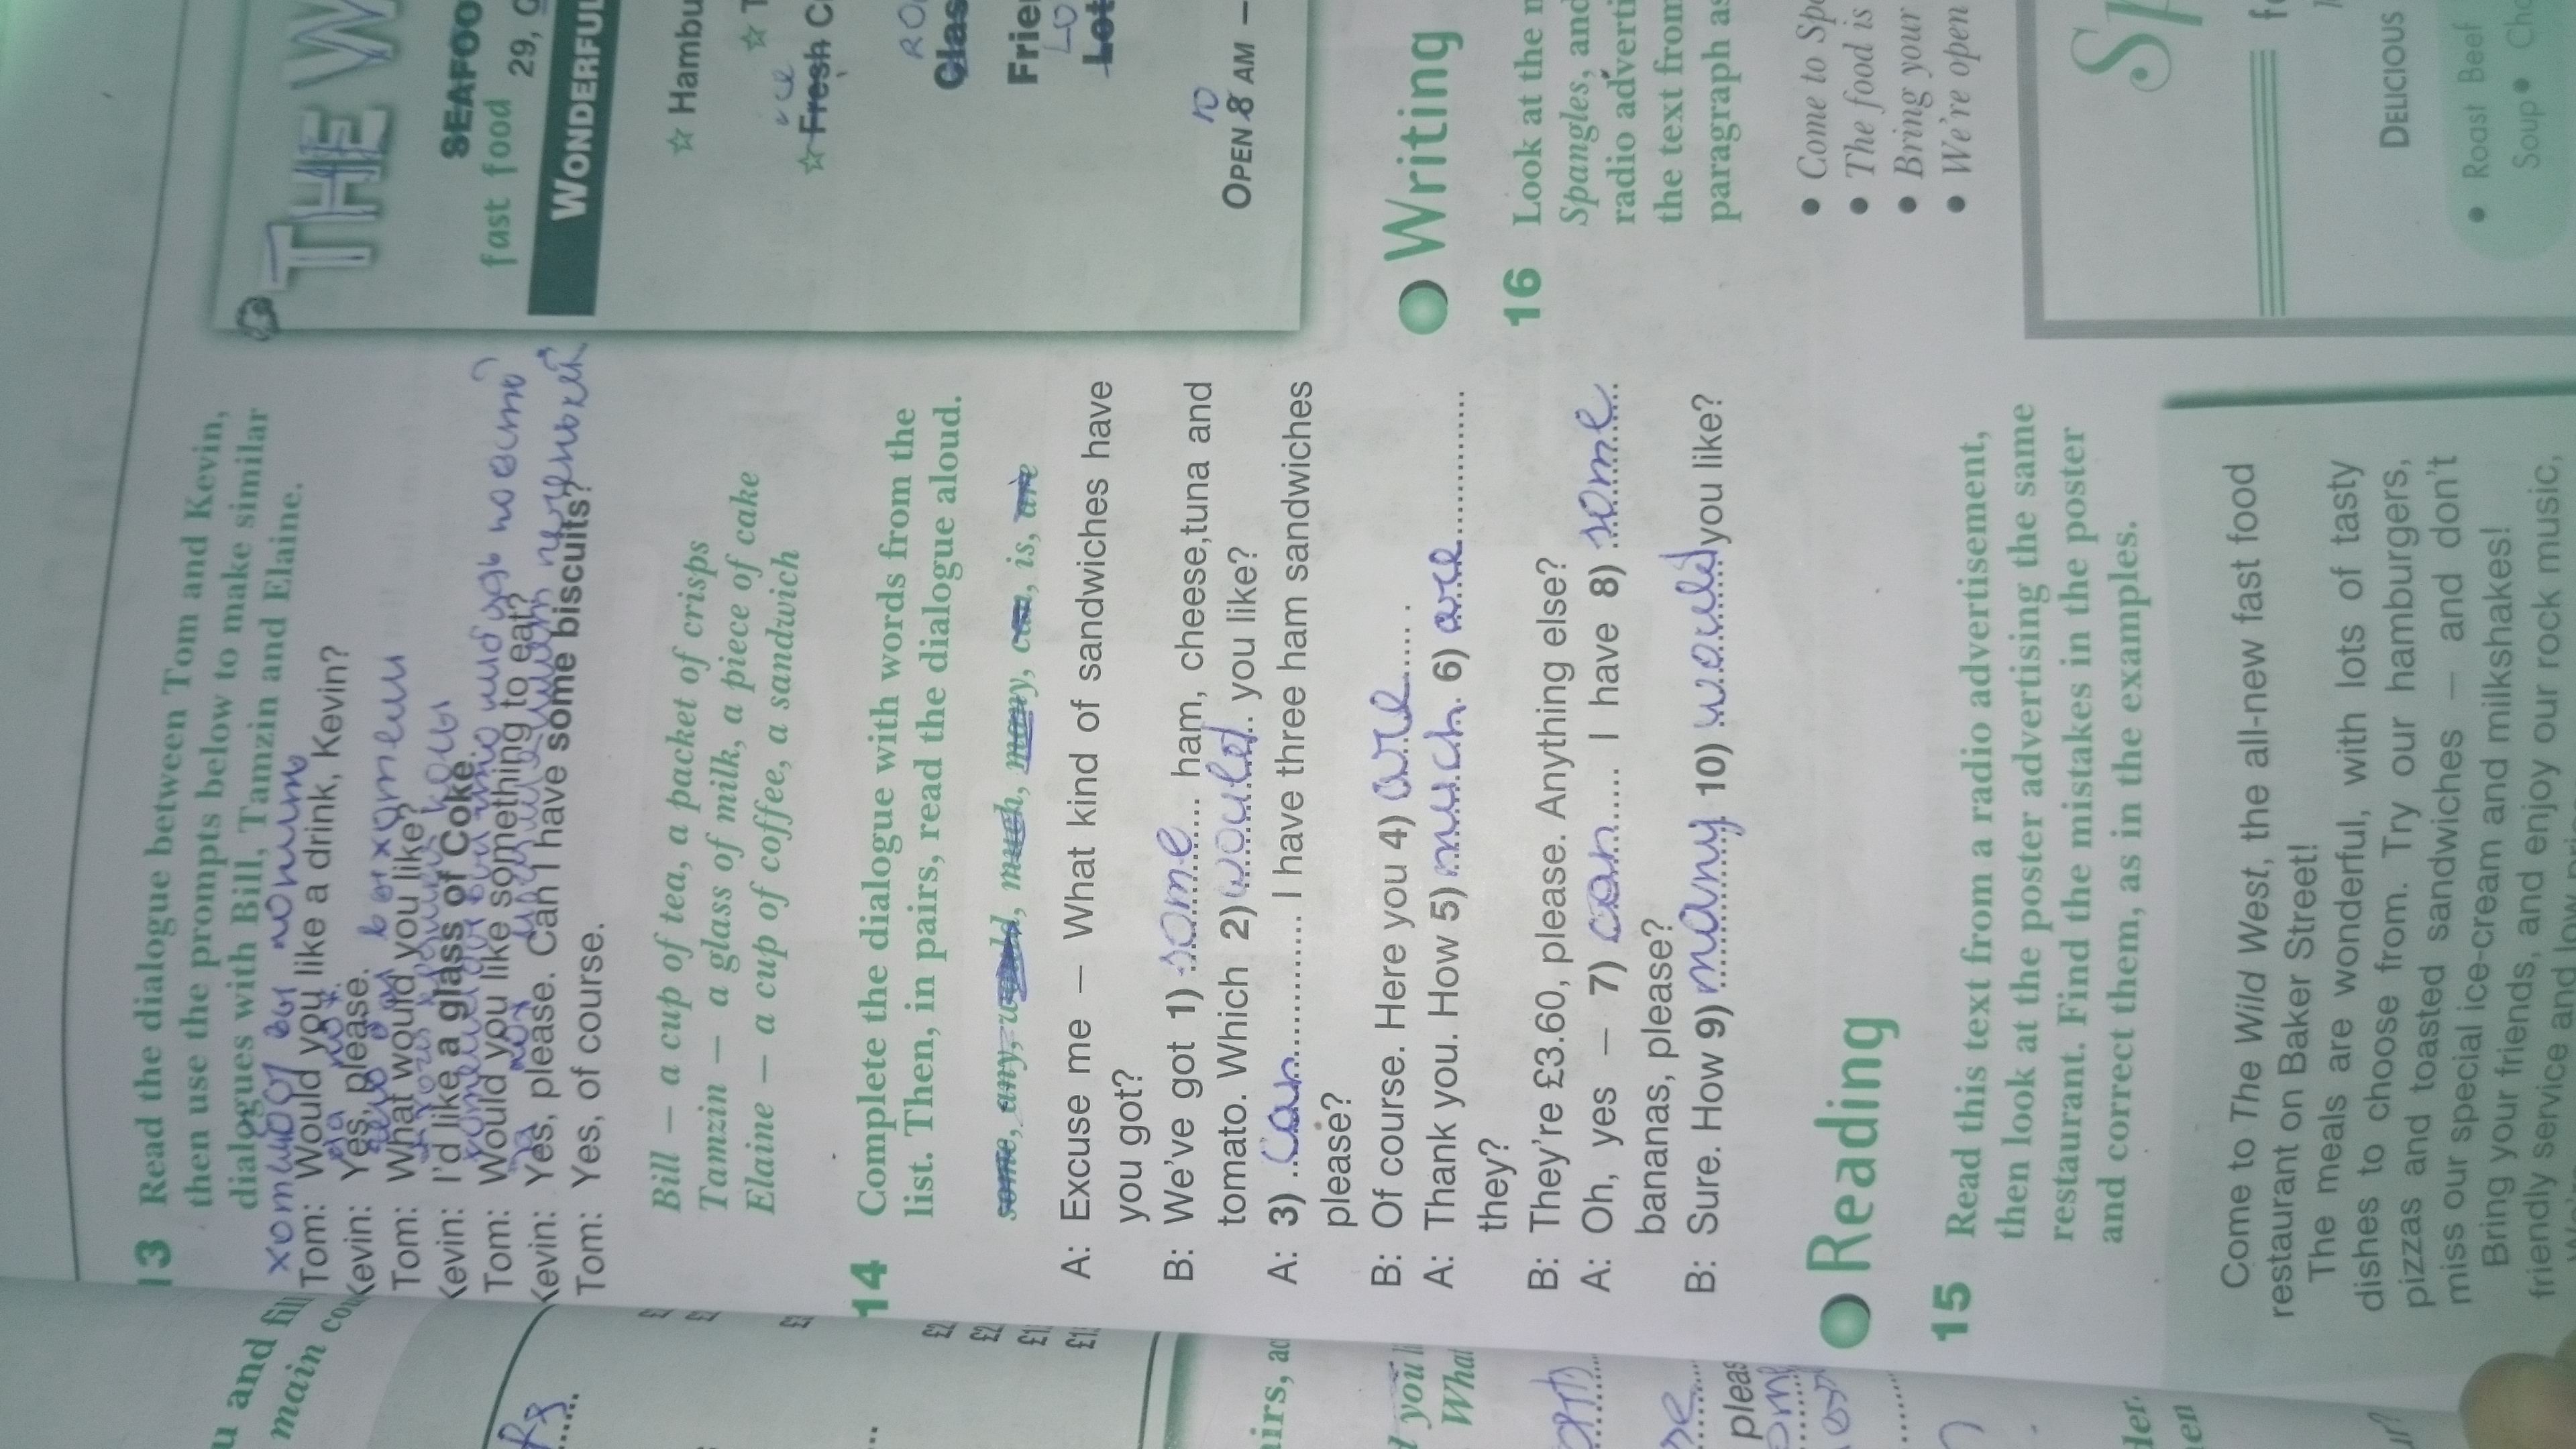 13 Read the dialogue between Tom and Kevin,
then use the prompts below to make similar
dialogues with Bill, Tamzin and Elaine.
Tom: Would you like a drink, Kevin?
Kevin: Yes, please.
Tom: What would you like?
Kevin: I'd like a glass of Coke.
Tom: Would you like something to eat?
Kevin: Yes, please. Can I have some biscuits?
Tom: Yes, of course.
Bill – a cup of tea, a packet of crisps
Tamzin – a glass of milk, a piece of cake
Elaine – a cup of coffee, a sandwich
14 Complete the dialogue with words from the
list. Then, in pairs, read the dialogue aloud.
some, any, would, much, many, can, is, are
A: Excuse me – What kind of sandwiches have
you got?
B: We've got 1) some ham, cheese,tuna and
tomato. Which 2) would you like?
A: 3) Can I have three ham sandwiches
please?
B: Of course. Here you 4) are
A: Thank you. How 5) much 6) are
they?
B: They're £3.60, please. Anything else?
A: Oh, yes – 7) can I have 8) some
bananas, please?
B: Sure. How 9) many 10) would you like?
Reading
15 Read this text from a radio advertisement,
then look at the poster advertising the same
restaurant. Find the mistakes in the poster
and correct them, as in the examples.
Come to The Wild West, the all-new fast food
restaurant on Baker Street!
The meals are wonderful, with lots of tasty
dishes to choose from. Try our hamburgers,
pizzas and toasted sandwiches – and don't
miss our special ice-cream and milkshakes!
Bring your friends, and enjoy our rock music,
friendly service and low
THE W
SEAFOO
fast food
29,
WONDERFUL
☆ Hambu
☆ T
ice
☆ Fresh C
Glas
Frie
Lo
Lot
10
OPEN 8 AM –
Writing
16 Look at the
Spangles, and
radio adverti
the text from
paragraph as
• Come to Sp
• The food is
• Bring your
• We're open
Sp
DELICIOUS
• Roast Beef
Soup • Ch
u and fill
main
£2
£2
£1
£1
airs,
you
What
pleas